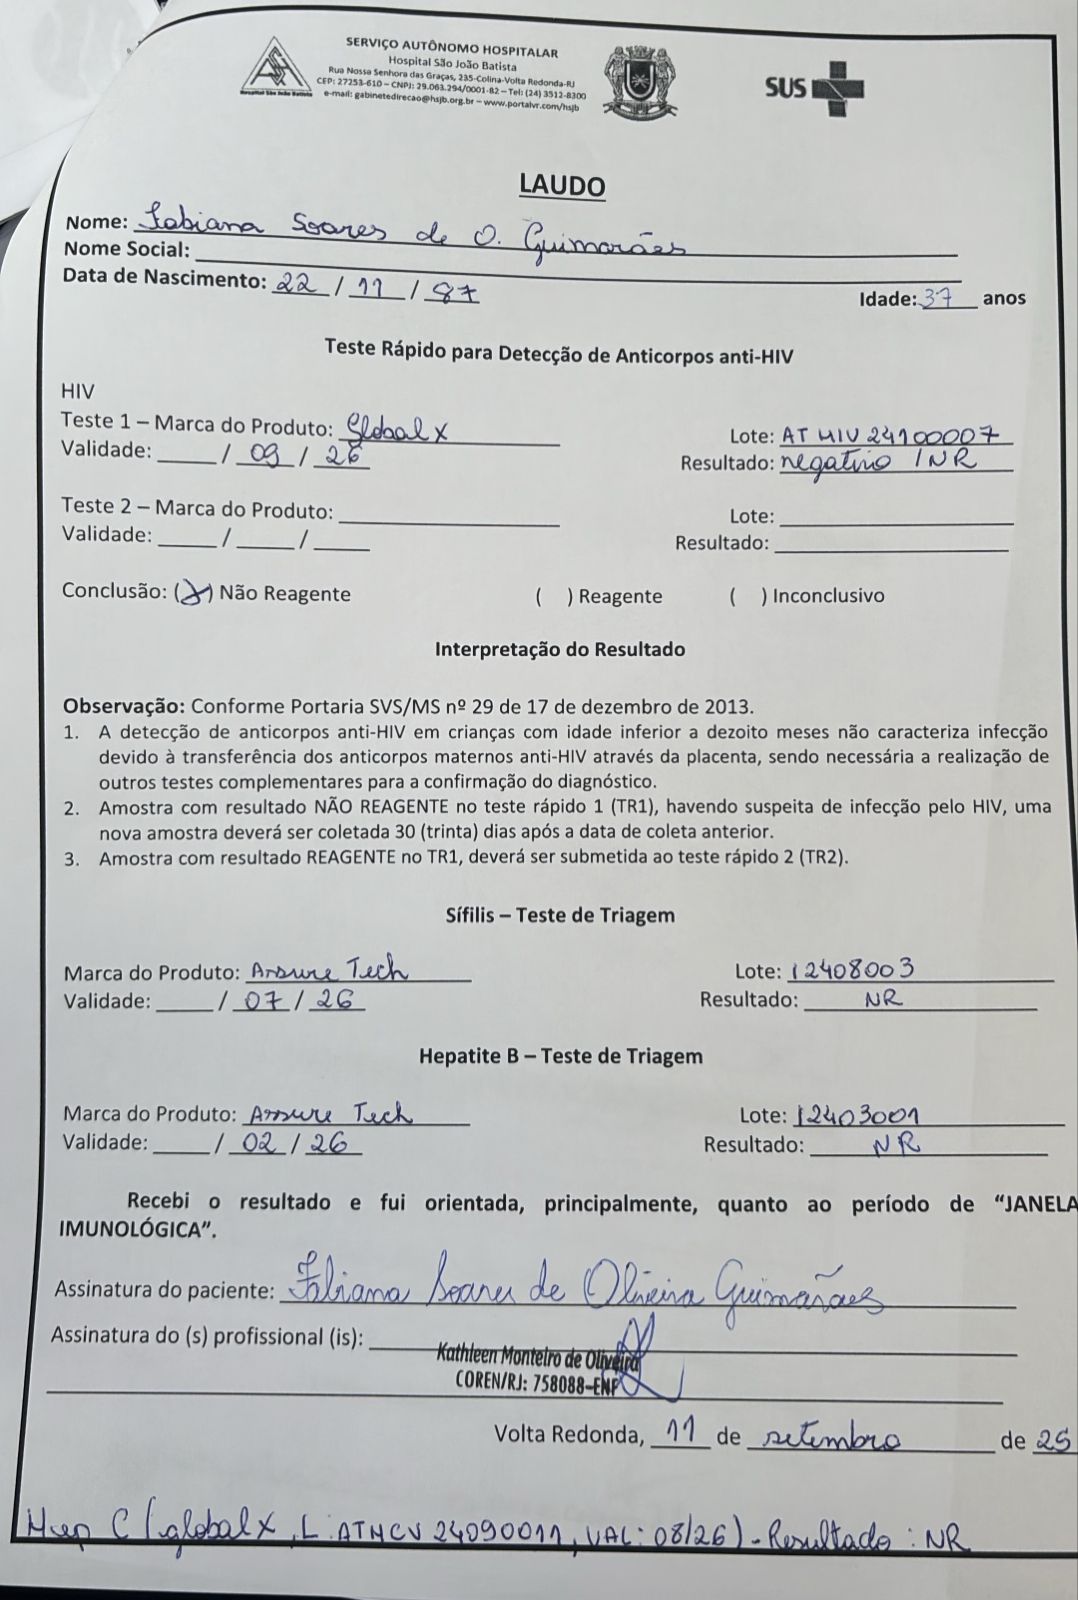 SERVIÇO AUTÔNOMO HOSPITALAR
Hospital São João Batista
Rua Nossa Senhora das Graças, 235-Colina-Volta Redonda-RJ
CEP: 27253-610 – CNPJ: 29.063.294/0001-82 – Tel: (24) 3512-8300
e-mail: gabinetedirecao@hsjb.org.br – www.portalvr.com/hsjb
Hospital São João Batista
SUS
LAUDO
Nome: Fabiana Soares de O. Guimarães
Nome Social:
Data de Nascimento: 22 / 11 / 87
Idade: 37 anos
Teste Rápido para Detecção de Anticorpos anti-HIV
HIV
Teste 1 – Marca do Produto: Global X Lote: AT HIV 24100007
Validade: ____ / 09 / 26 Resultado: negativo / NR
Teste 2 – Marca do Produto: Lote:
Validade: ____ / ____ / ____ Resultado:
Conclusão: (X) Não Reagente ( ) Reagente ( ) Inconclusivo
Interpretação do Resultado
Observação: Conforme Portaria SVS/MS nº 29 de 17 de dezembro de 2013.
1. A detecção de anticorpos anti-HIV em crianças com idade inferior a dezoito meses não caracteriza infecção
devido à transferência dos anticorpos maternos anti-HIV através da placenta, sendo necessária a realização de
outros testes complementares para a confirmação do diagnóstico.
2. Amostra com resultado NÃO REAGENTE no teste rápido 1 (TR1), havendo suspeita de infecção pelo HIV, uma
nova amostra deverá ser coletada 30 (trinta) dias após a data de coleta anterior.
3. Amostra com resultado REAGENTE no TR1, deverá ser submetida ao teste rápido 2 (TR2).
Sífilis – Teste de Triagem
Marca do Produto: Assure Tech Lote: 12408003
Validade: ____ / 07 / 26 Resultado: NR
Hepatite B – Teste de Triagem
Marca do Produto: Assure Tech Lote: 12403001
Validade: ____ / 02 / 26 Resultado: NR
Recebi o resultado e fui orientada, principalmente, quanto ao período de “JANELA
IMUNOLÓGICA”.
Assinatura do paciente: Fabiana Soares de Oliveira Guimarães
Assinatura do (s) profissional (is):
Kathleen Monteiro de Oliveira
COREN/RJ: 758088-ENF
Volta Redonda, 11 de setembro de 25
Hep C (global X, L: ATHCV 24090011, VAL: 08/26) - Resultado : NR